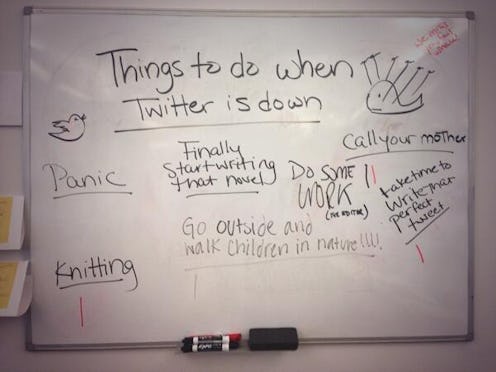 Things to do when
Twitter is down
we miss
you fail
whale!
Panic
Finally
start writing
that novel
DO SOME
WORK
(THE EDITOR)
Call your mother
take time to
write that
perfect
tweet
Go outside and
walk children in nature!!!!
Knitting